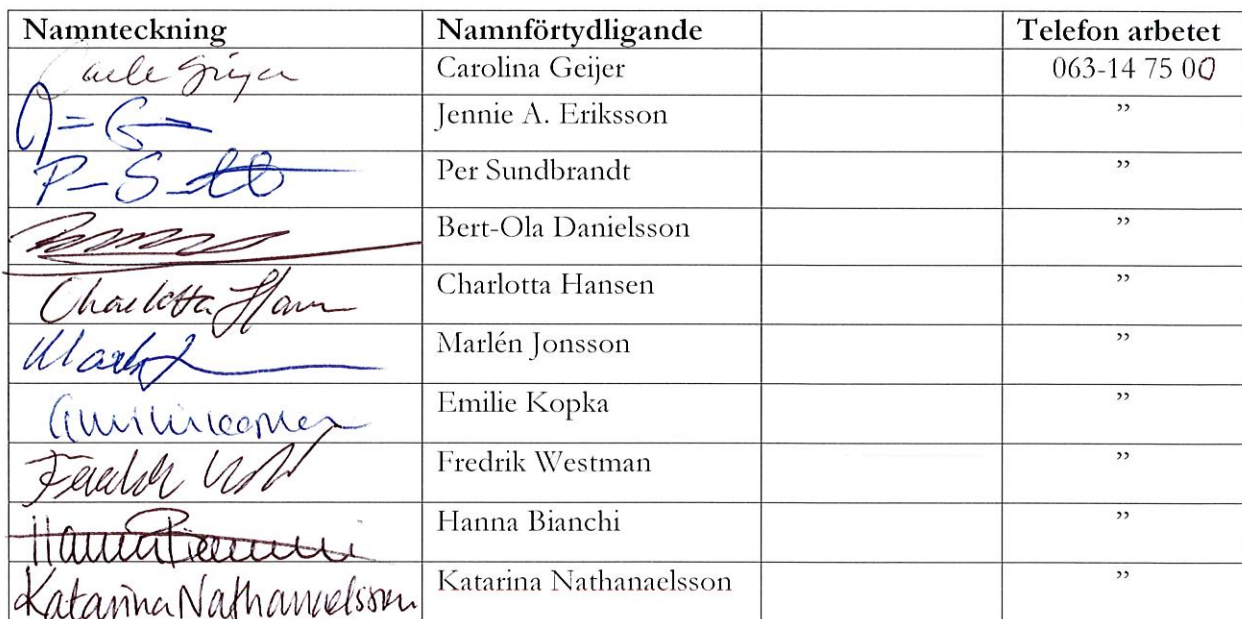 Namnteckning Namnförtydligande Telefon arbetet
Carolina Geijer 063-14 75 00
Jennie A. Eriksson ”
Per Sundbrandt ”
Bert-Ola Danielsson ”
Charlotta Hansen ”
Marlén Jonsson ”
Emilie Kopka ”
Fredrik Westman ”
Hanna Bianchi ”
Katarina Nathanaelsson Katarina Nathanaelsson ”